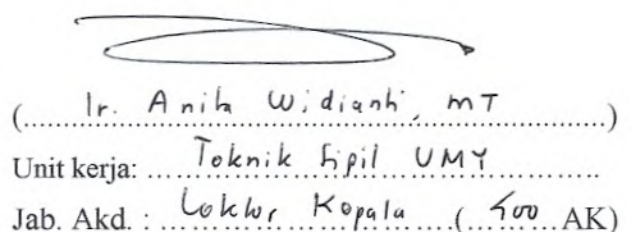 (Ir. Anita Widianti, MT)
Unit kerja: Teknik Sipil UMY
Jab. Akd. : Lektor Kepala (400 AK)